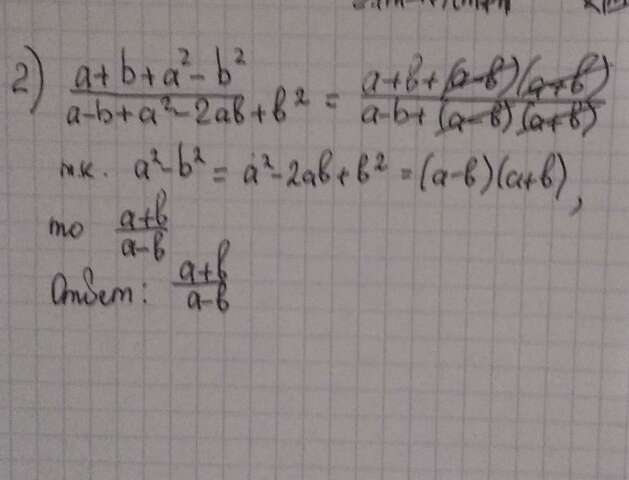 2) (a+b+a²-b²)/(a-b+a²-2ab+b²) = (a+b+(a-b)(a+b))/(a-b+(a-b)(a+b))
т.к. a²-b² = a²-2ab+b² = (a-b)(a+b),
то (a+b)/(a-b)
Ответ: (a+b)/(a-b)